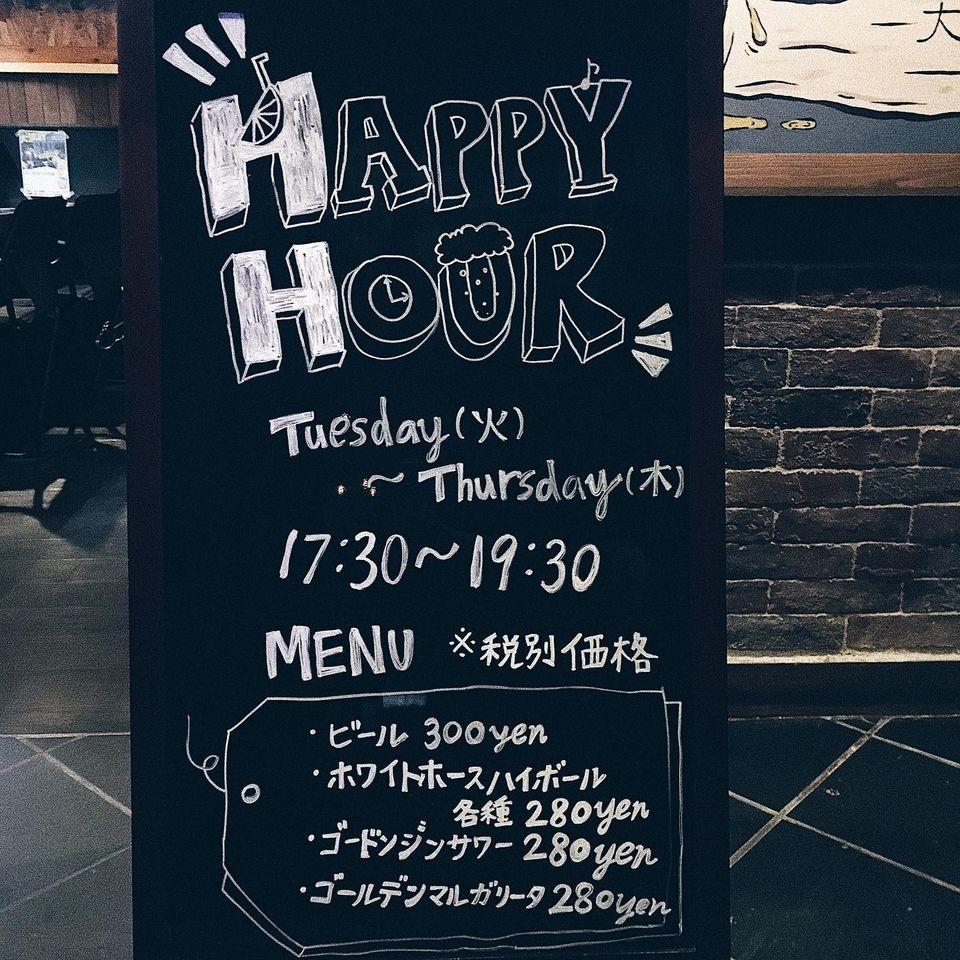 大
HAPPY
HOUR
Tuesday(火)
～Thursday(木)
17:30～19:30
MENU ※税別価格
・ビール 300yen
・ホワイトホースハイボール
各種 280yen
・ゴードンジンサワー 280yen
・ゴールデンマルガリータ 280yen